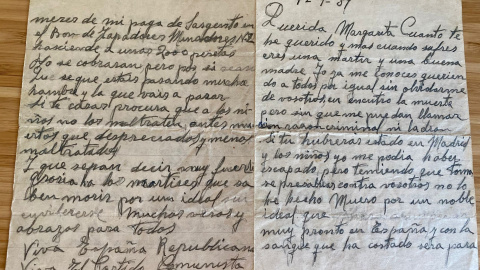 meses de mi paga de Sargento en
el Bon de Zapadores Minadores Nº2
haciende a unas 2000 pesetas
No se cobrasan pero por si
Se que estais pasando mucha
hambre y la que vais a pasar
Si te casas procura que a los ni
ños no los maltraten antes muer
tos que despreciados y menos
maltratados
Y que sepan decir muy fuerte
Gloria ha los martires que sa
ben morir por un ideal sin
Muchos vesos y
abrazos para todos
Viva España Republicana
Viva El Partido Comunista
Querida Margarita Cuanto te
he querido y mas cuando sufres
eres una martir y una buena
madre Tu ya me conoces querien
do a todos por igual sin olvidarme
de vosotros encuentro la muerte
pero sin que me puedan llamar
con razon criminal ni ladron
Si tu hubieras estado en Madrid
y los niños yo me podia haber
escapado pero temiendo que toma
se represalias contra vosotros no lo
he hecho Muero por un noble
ideal que
muy pronto en España y con la
sangre que ha costado sera para